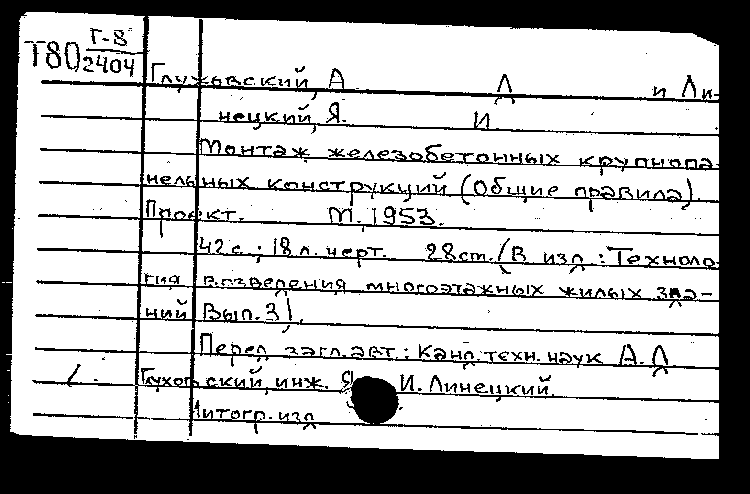 Т80 Г-8
2404
Глуховский, А Д и Ли-
нецкий, Я. И
Монтаж железобетонных крупнопа-
нельных конструкций (Общие правила)
Проект. М., 1953.
42 с.; 18 л. черт. 28 см. (В изд: Техноло-
гия возведения многоэтажных жилых зда-
ний Вып. 3).
Перед загл. авт.: Канд. техн. наук А. Д
Глуховский, инж. Я И. Линецкий.
Литогр. изд